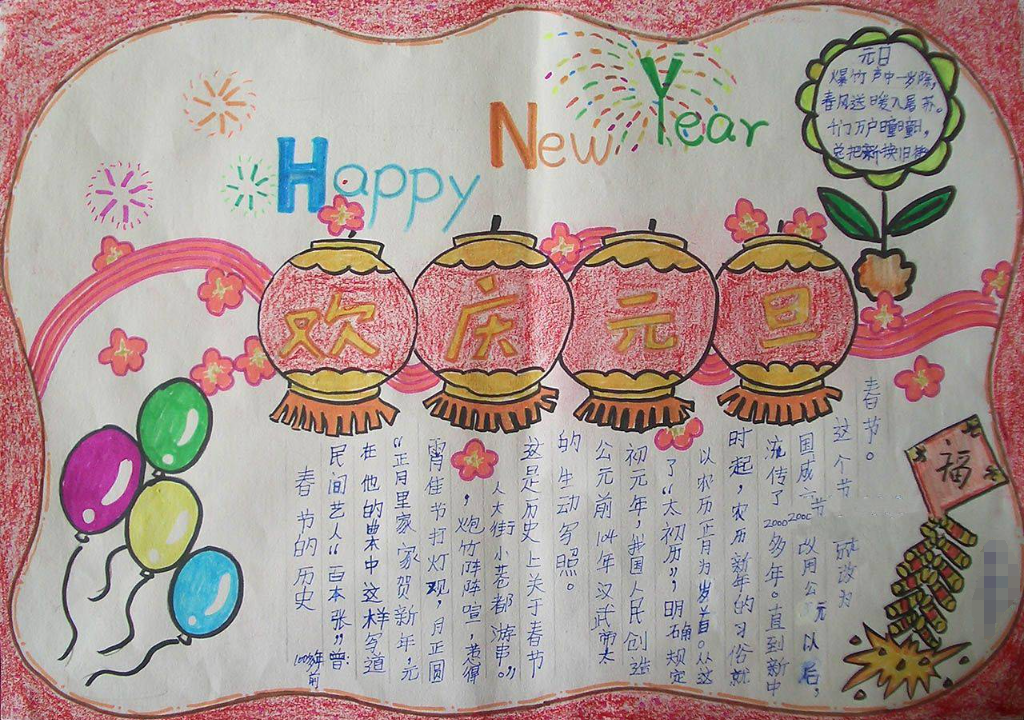 Happy New Year
元日
爆竹声中一岁除,
春风送暖入屠苏。
千门万户曈曈日,
总把新换旧
欢庆元旦
福
春节的历史
100多年前
民间艺人"百本张"曾
在他的曲中这样写道:
"正月里家家贺新年,元
宵佳节打灯观,月正圆
,炮竹阵阵喧,惹得
人大街小巷都游串。"
这是历史上关于春节
的生动写照。
公元前104年汉武帝太
初元年,我国人民创造
了"太初历",明确规定
以农历正月为岁首。从这
时起,农历新年的习俗就
流传了2000多年。直到新中
国成 改用公元以后,
这个节 改为
春节。